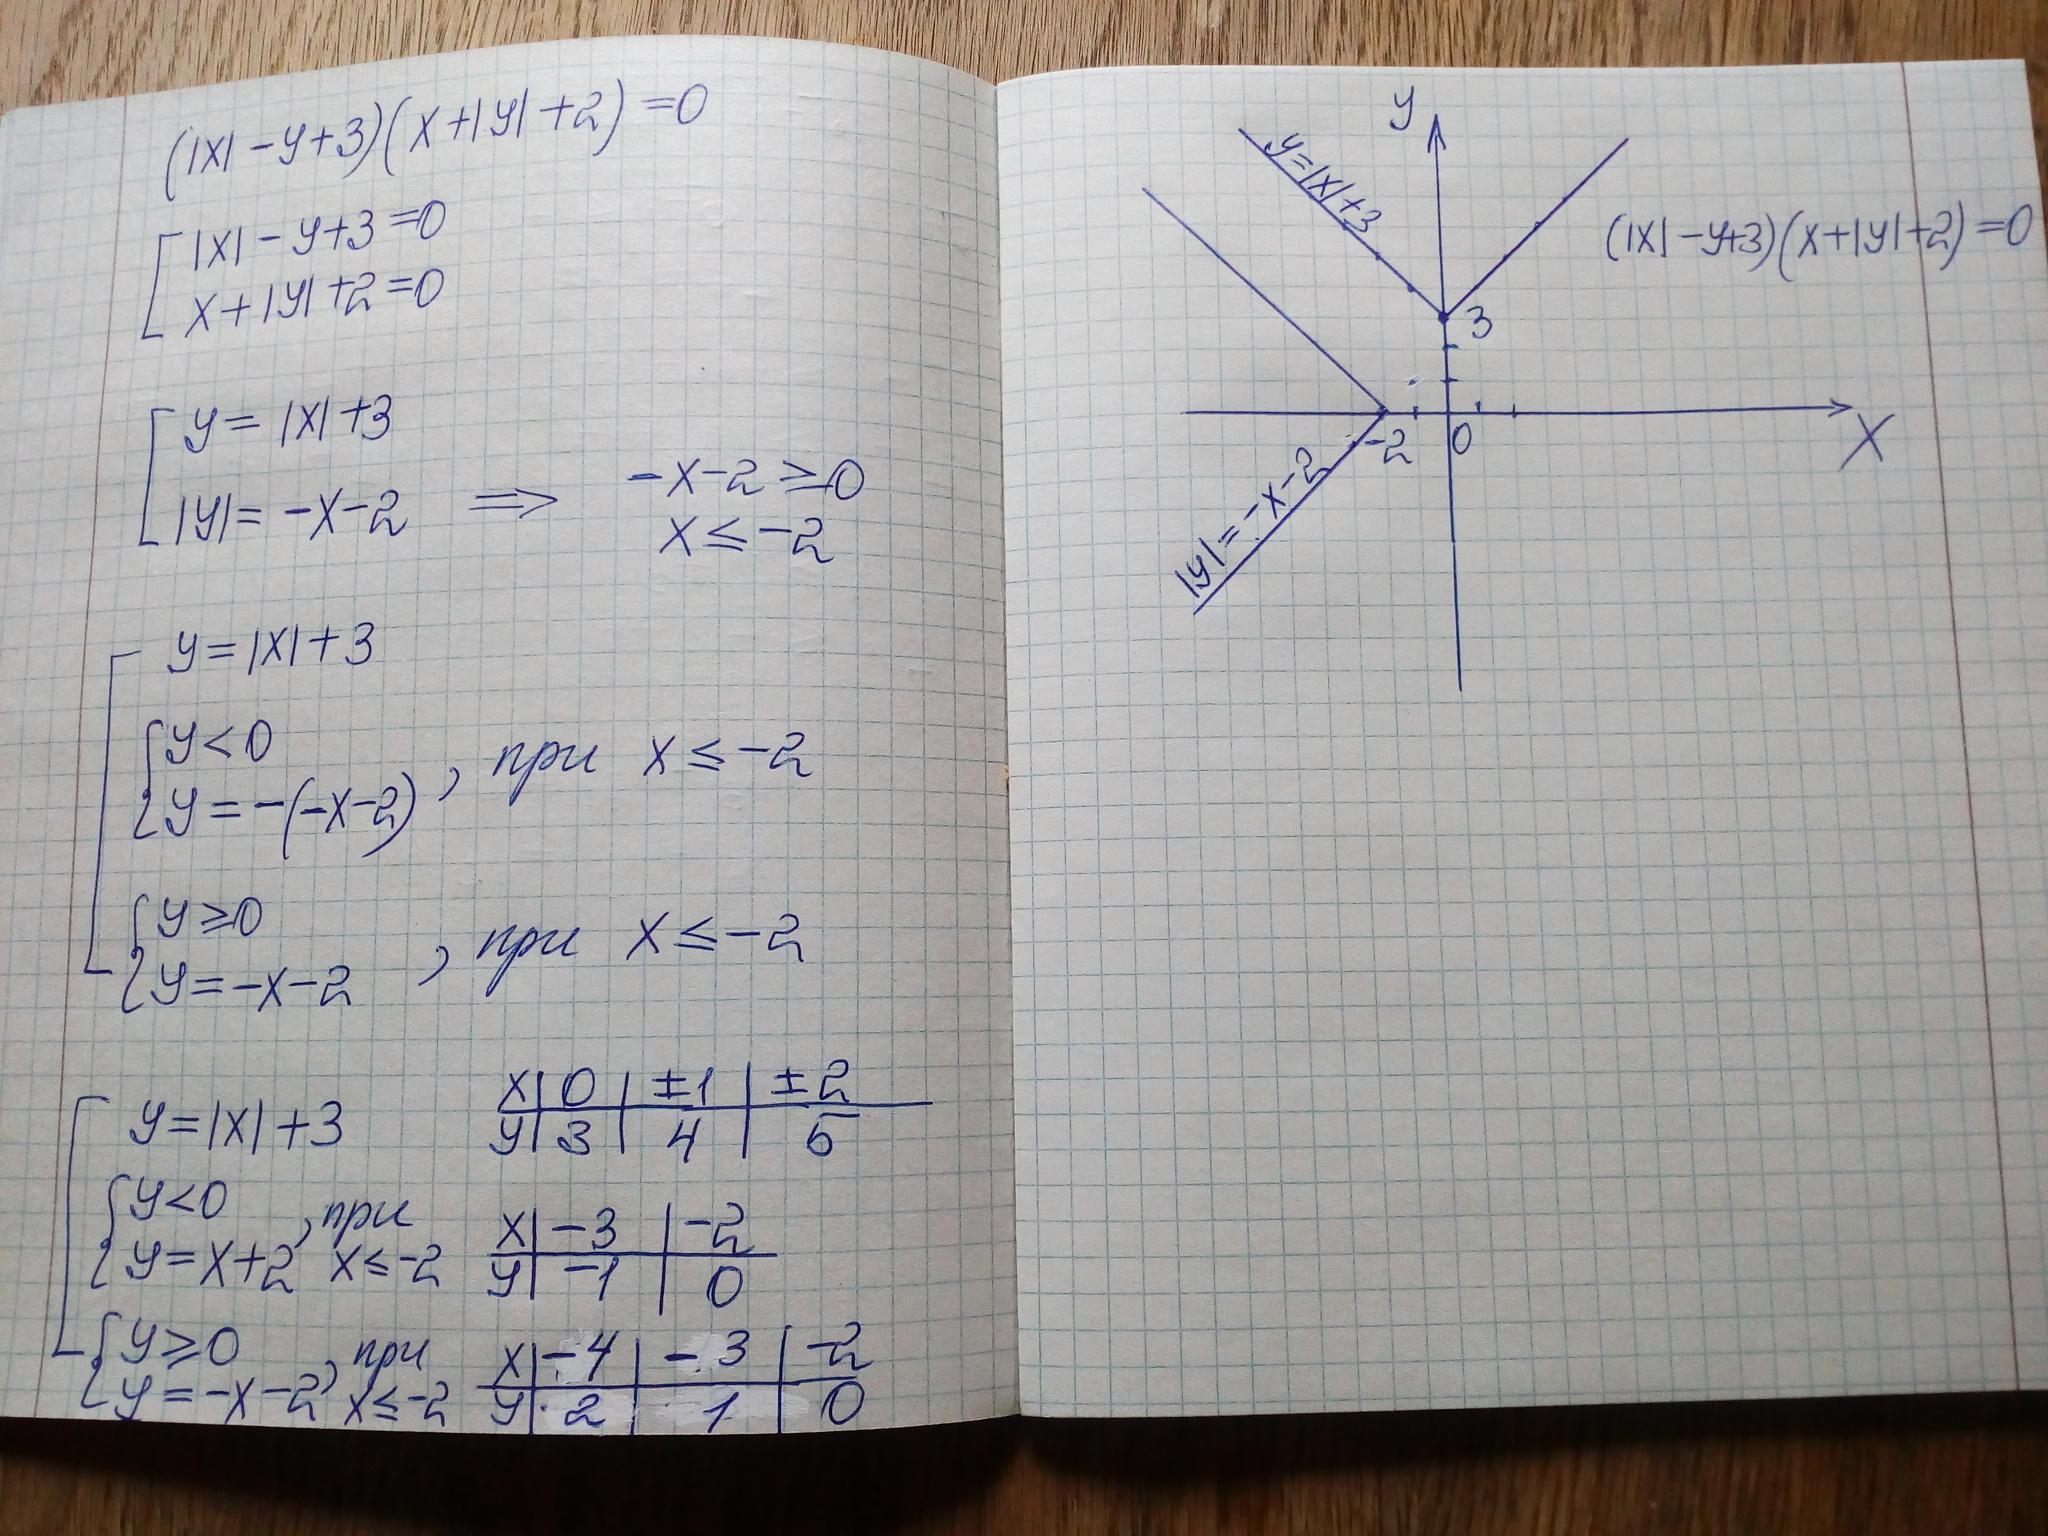 (|x| - y + 3)(x + |y| + 2) = 0
|x| - y + 3 = 0
x + |y| + 2 = 0
y = |x| + 3
|y| = -x - 2 ⟹ -x - 2 ≥ 0
x ≤ -2
y = |x| + 3
y < 0
y = -(-x - 2) , при x ≤ -2
y ≥ 0
y = -x - 2 , при x ≤ -2
y = |x| + 3
x | 0 | ±1 | ±2
y | 3 | 4 | 5
y < 0
y = x + 2 , при x ≤ -2
x | -3 | -2
y | -1 | 0
y ≥ 0
y = -x - 2 , при x ≤ -2
x | -4 | -3 | -2
y | 2 | 1 | 0
y
y = |x| + 3
(|x| - y + 3)(x + |y| + 2) = 0
3
-2
0
x
|y| = -x - 2